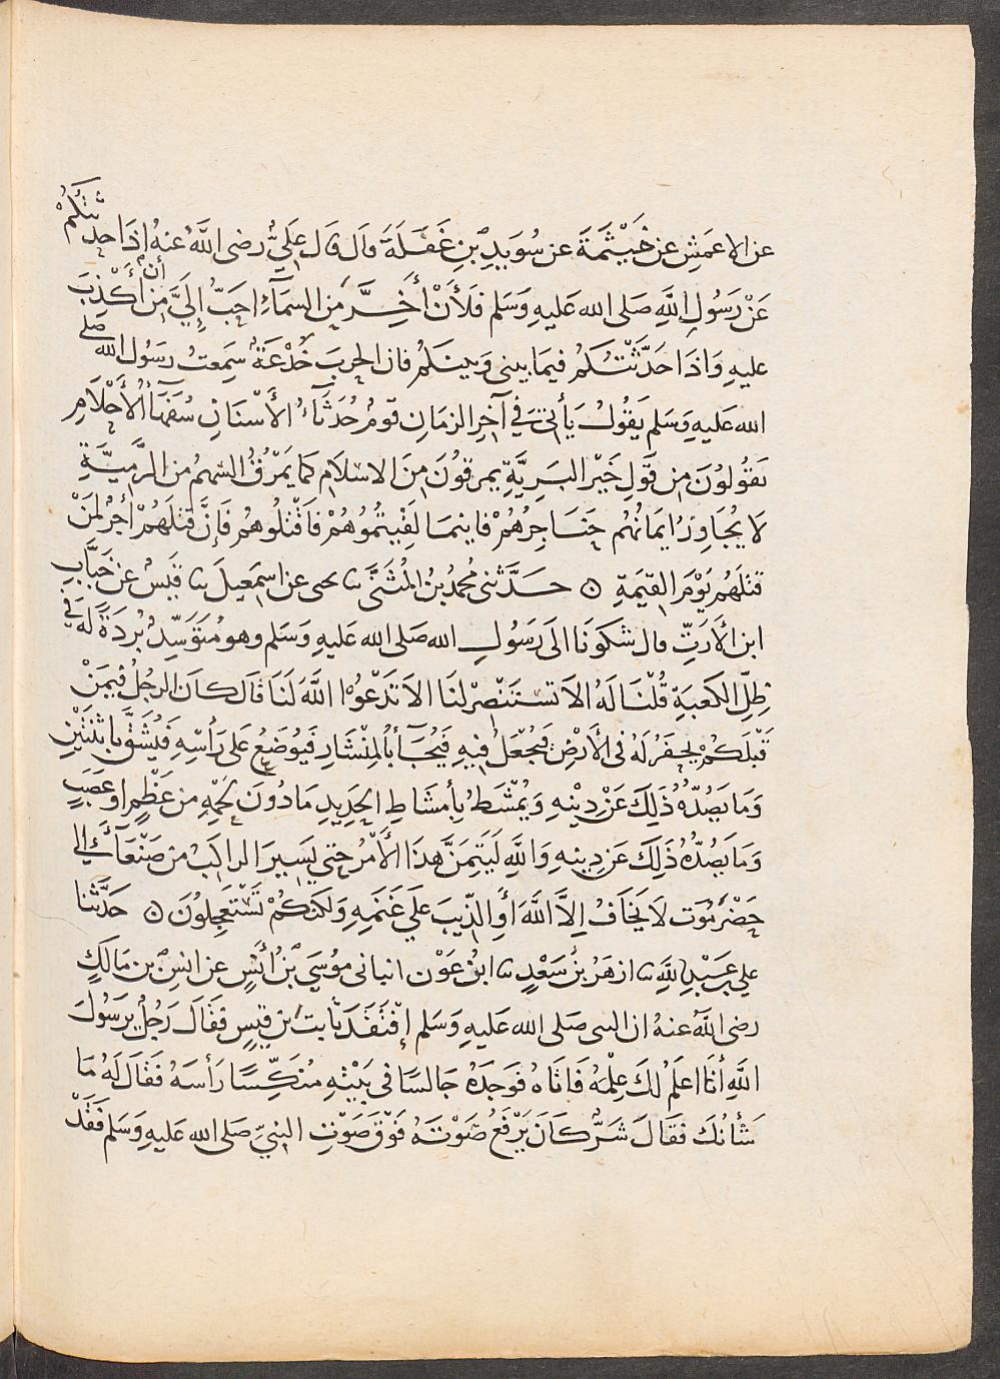 عن الاعمَشِ عن خَيْثمَةَ عن سُوَيدِ بْنِ غَفَلَةَ قال قال عَلِيٌّ رضى اللَّهُ عنهُ اِذَا حدثتكم
عَنْ رَسُولِ اللَّهِ صَلى الله عَليهِ وَسَلم فَلَأَنْ أَخِرَّ مِنَ السمَآءِ احَبُّ إِلَيَّ مِن أن أَكْذِبَ
عليهِ وَاذَا حَدَّثْتُكمُ فيمَا بينى وَبينكمُ فان الحربَ خَُدْعَةٌ سَمِعتُ رسَوُل الله صلى
الله عَليهِ وَسَلم يَقُولُ يَأتىَ فىِ آخرِ الزمَانِ قومُ حُدَثَآءُ الأَسْنَانِ سُفَهَآءُ الأَحْلَامِ
يَقُولُونَ مِن قَولِ خَيْرِ البَرِيَّةِ يمرقوُنَ مِنَ الاسْلَامِ كَما يَمْرُقُ السَّهمُ من الرَّمِيَّةِ
لَا يُجَاوِزُ ايمَانُهُم حَنَاجِرَهُمْ فاينمَا لَقِيتُموُهُمْ فَاقْتلُوهُم فَإنَّ قَتلَهُمْ أجْرُ لمَنْ
قتلَهُم يَوْمَ القِيَمةِ ۞ حَدَّثنى مُحَمدُ بنُ المُثَنَّى ثنا يحيى عن اسمَعِيلَ ثنا قيسُ عن خَبَّابِ
ابن الأَرَتِّ قال شكوَنَا الَى رَسوُلِ الله صَلى الله عَليهِ وَسَلم وهو مُتَوَسِّدٌ بُردَةً لَهُ فى
ظِلِّ الكَعبَةِ قُلْنَا لَهُ الاَ تسْتَنْصِرْ لنَا الاَ تَدْعُوْا اللَّهَ لَنَا قَالَ كانَ الرجُلُ فيمَنْ
قَبْلَكُمْ يُحفَرُ لَهُ فى الأَرْضِ فيجْعَلُ فيهِ فَيُجَآءُ بالمِنْشَارِ فَيوُضَعُ عَلى رَأسهِ فَيُشَقُّ باثنَتَيْنِ
وَمَا يَصُدُّهُ ذَلِكَ عَنْ دِينِهِ وَيُمْشَطُ بِأَمشَاطِ الحَدِيدِ مَا دُونَ لَحمِهِ من عَظْمٍ او عَصَبٍ
وَمَا يَصُدُّهُ ذَلِكَ عَن دِينهِ وَاللَّهِ لَيَتِمَنَّ هذَا الأَمْرُ حتي يَسِيرَ الراكبُ مِن صَنْعَآءَ إلى
حَضْرَمَوتَ لاَ يخَافُ اِلاَّ اللَّهَ أَوِ الذِّيبَ عَلي غَنَمِهِ وَلَكنكُمْ تَسْتَعجِلُونَ ۞ حَدَّثنَا
علي بن عَبْدِ اللَّهِ ثنا ازهَرُ بنُ سَعْدٍ ثنا ابنُ عَوْن انبانى موُسَى بْنُ أَنَسٍ عن انسِ بْن مَالكٍ
رضى اللَّهُ عنهُ ان النبى صَلى الله عَليهِ وَسَلم إفتَقَدَ ثَابتَ بنَ قَيسٍ فقَالَ رَجُلُ يرسَوُلَ
اللَّهِ أنَا اعلَمُ لكَ عِلمْهُ فَاتَاهُ فَوجَدَهُ جَالسًا فى بَيْتهِ مُنَكِّسًا رَأسَهُ فَقَالَ لَهُ مَا
شَأنُكَ فَقَالَ شَرٌّ كانَ يَرْفَعُ صَوْتَهُ فَوْقَ صَوْتِ النبيِّ صَلى الله عَليهِ وَسَلم فَقَدْ